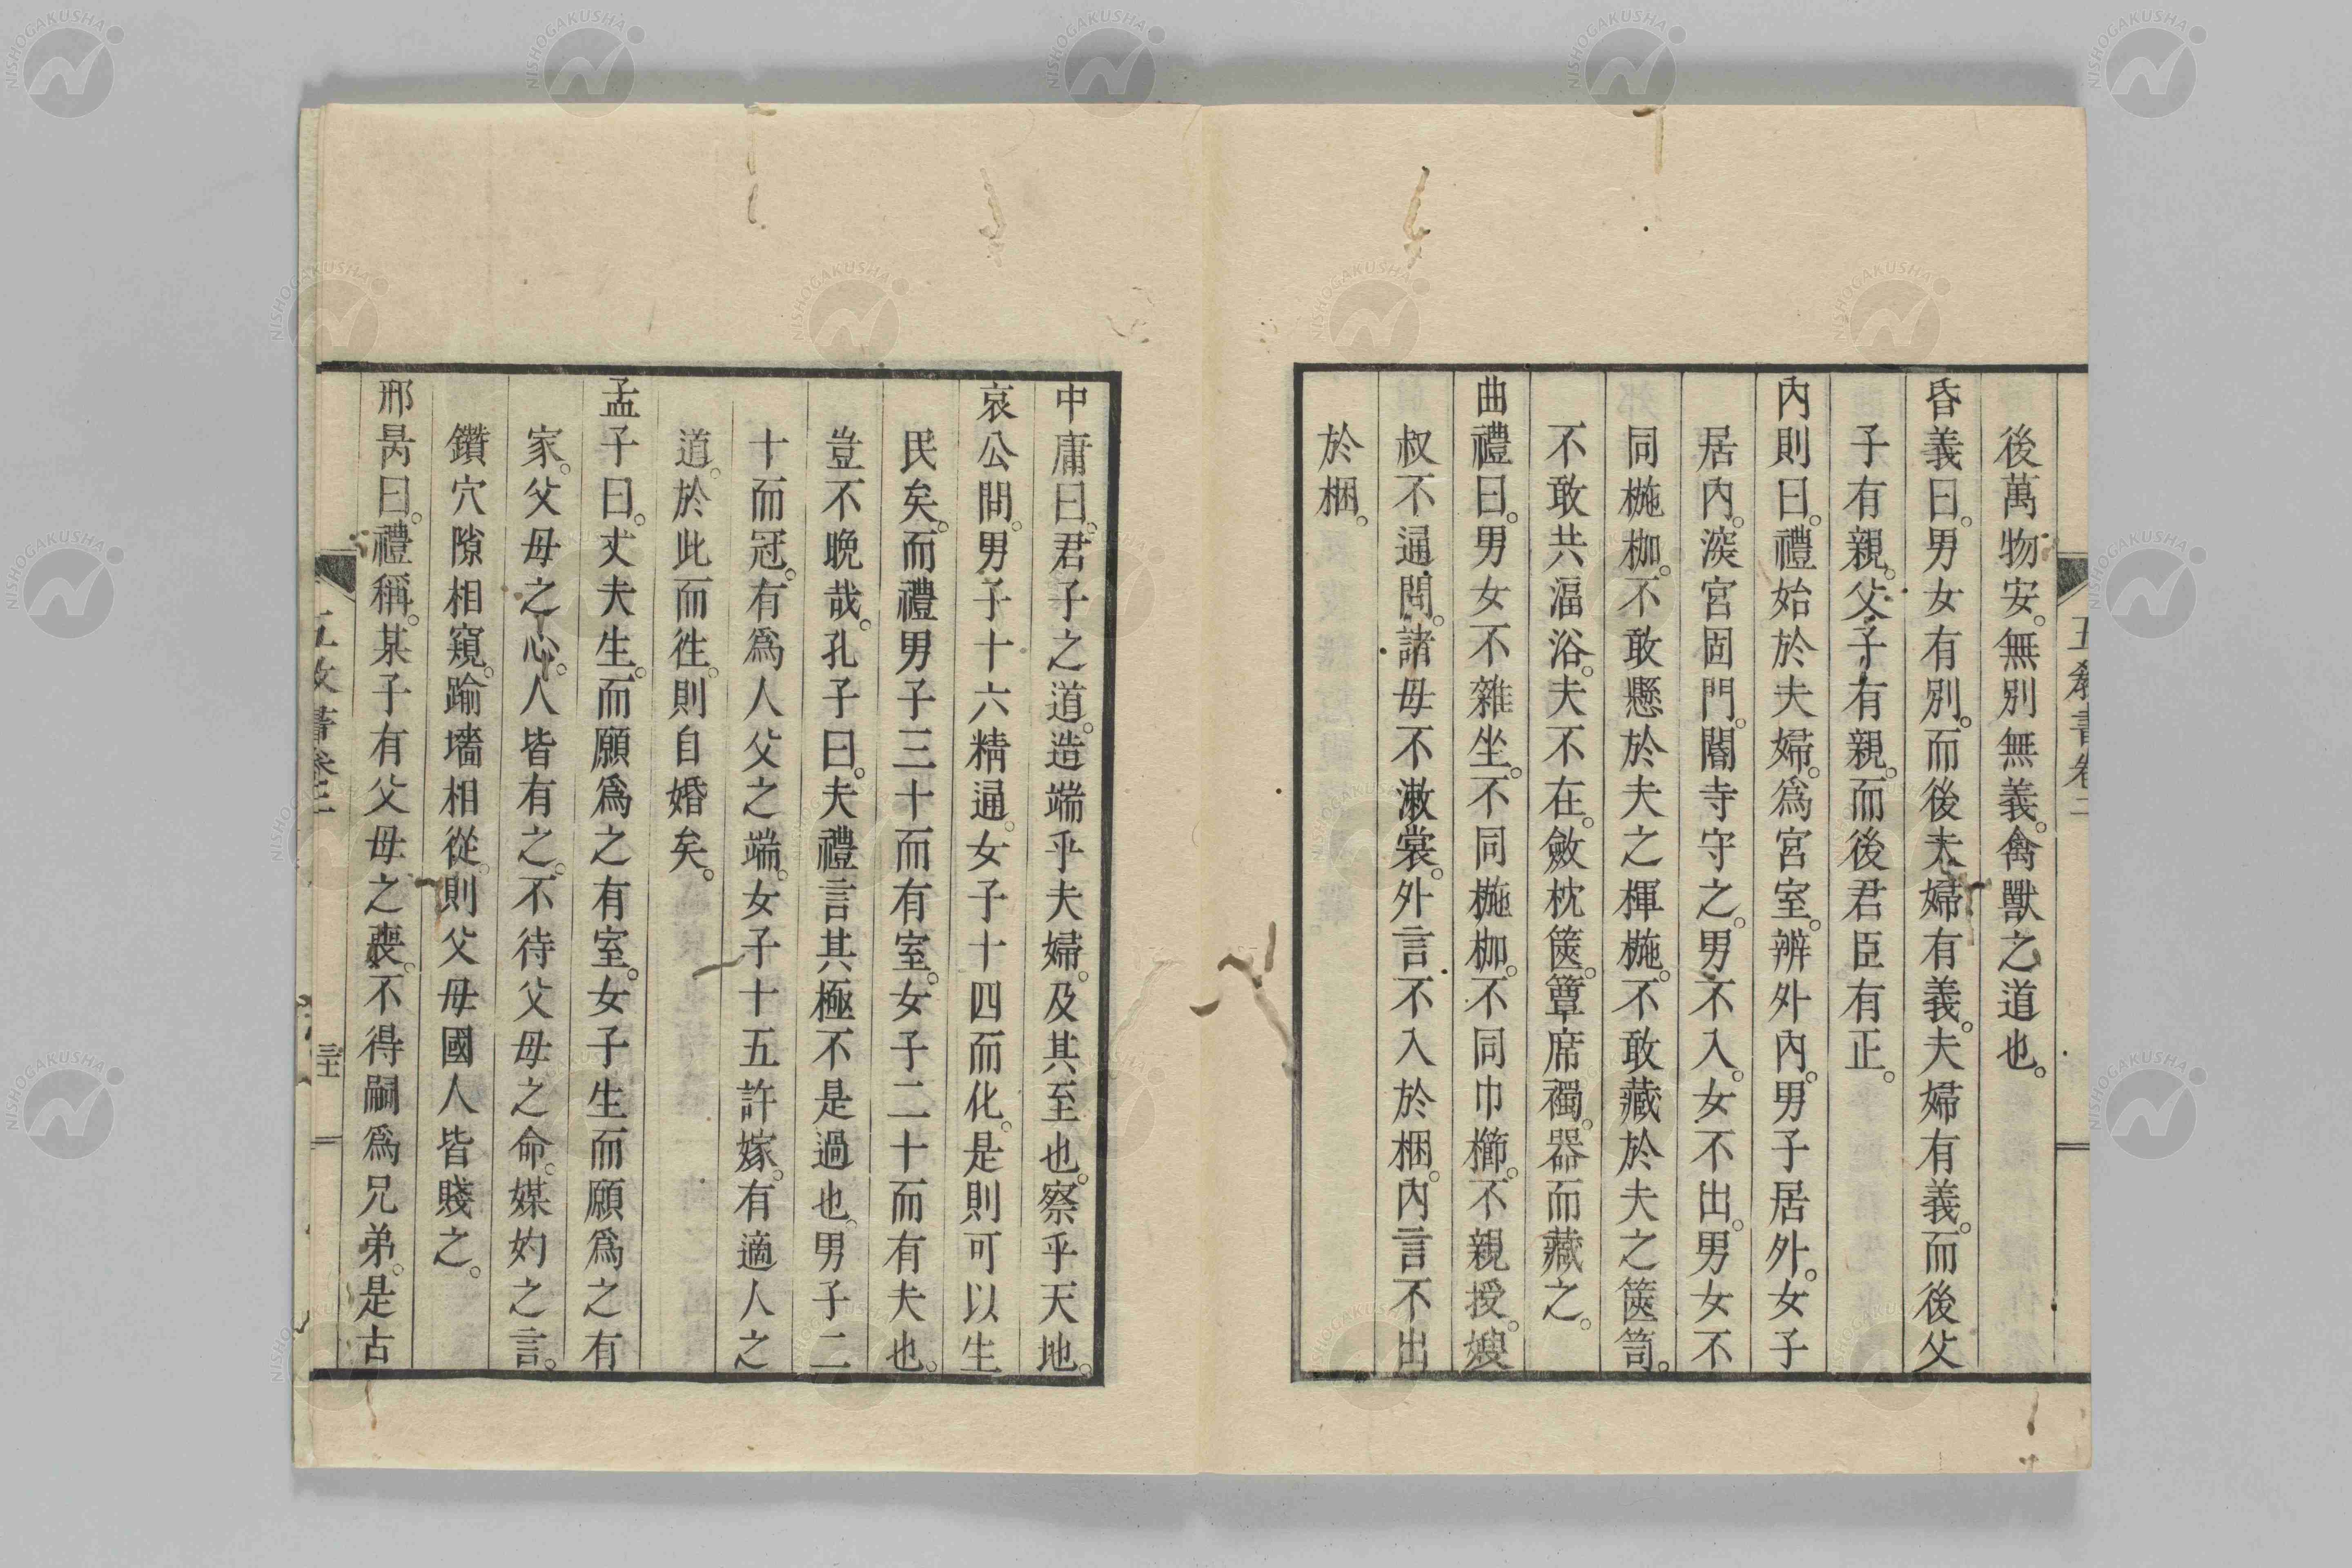 後萬物安。無別無義。禽獸之道也。
昏義曰。男女有別。而後夫婦有義。夫婦有義。而後父
子有親。父子有親。而後君臣有正。
內則曰。禮始於夫婦。爲宮室。辨外內。男子居外。女子
居內。深宮固門。閽寺守之。男不入。女不出。男女不
同椸枷。不敢懸於夫之楎椸。不敢藏於夫之篋笥。
不敢共湢浴。夫不在。斂枕篋。簟席襡。器而藏之。
曲禮曰。男女不雜坐。不同椸枷。不同巾櫛。不親授。嫂
叔不通問。諸母不漱裳。外言不入於梱。內言不出
於梱。
五教書卷二
中庸曰。君子之道。造端乎夫婦。及其至也。察乎天地。
哀公問。男子十六精通。女子十四而化。是則可以生
民矣。而禮男子三十而有室。女子二十而有夫也。
豈不晚哉。孔子曰。夫禮言其極不是過也。男子二
十而冠。有爲人父之端。女子十五許嫁。有適人之
道。於此而徃。則自婚矣。
孟子曰。丈夫生。而願爲之有室。女子生而願爲之有
家。父母之心。人皆有之。不待父母之命。媒妁之言。
鑽穴隙相窺。踰墻相從。則父母國人皆賤之。
邢昺曰。禮稱。某子有父母之喪。不得嗣爲兄弟。是古
NISHOGAKUSHA